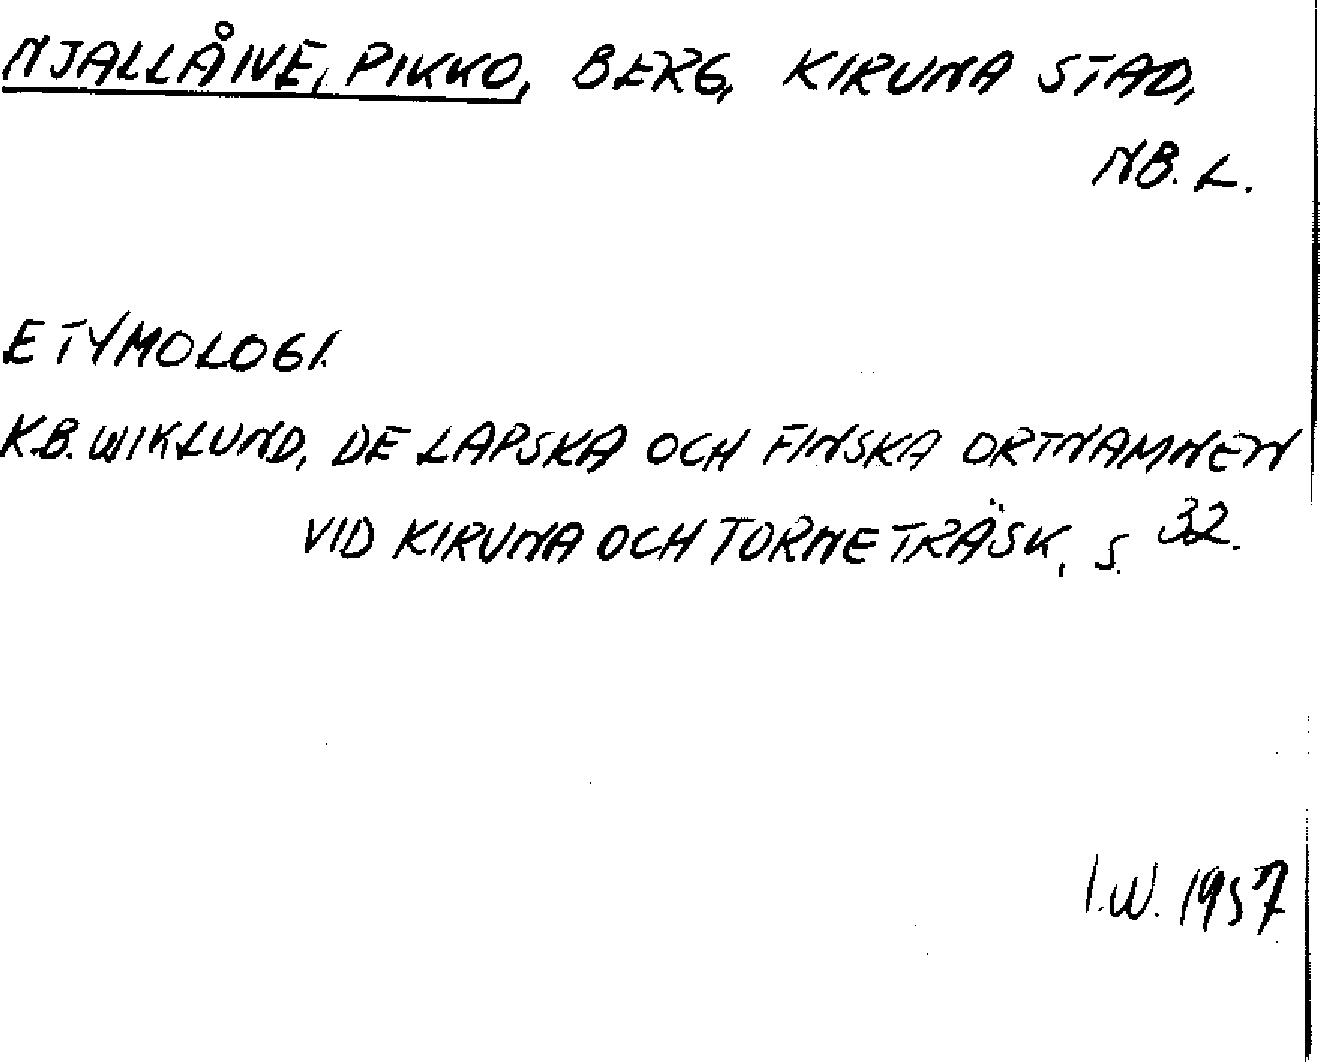 NJALLÅIVE, PIKKO, BERG, KIRUNA STAD,
NB. L.
ETYMOLOGI.
K.B. WIKLUND, DE LAPSKA OCH FINSKA ORTNAMNEN
VID KIRUNA OCH TORNE TRÄSK, S. 32.
I.W. 1957